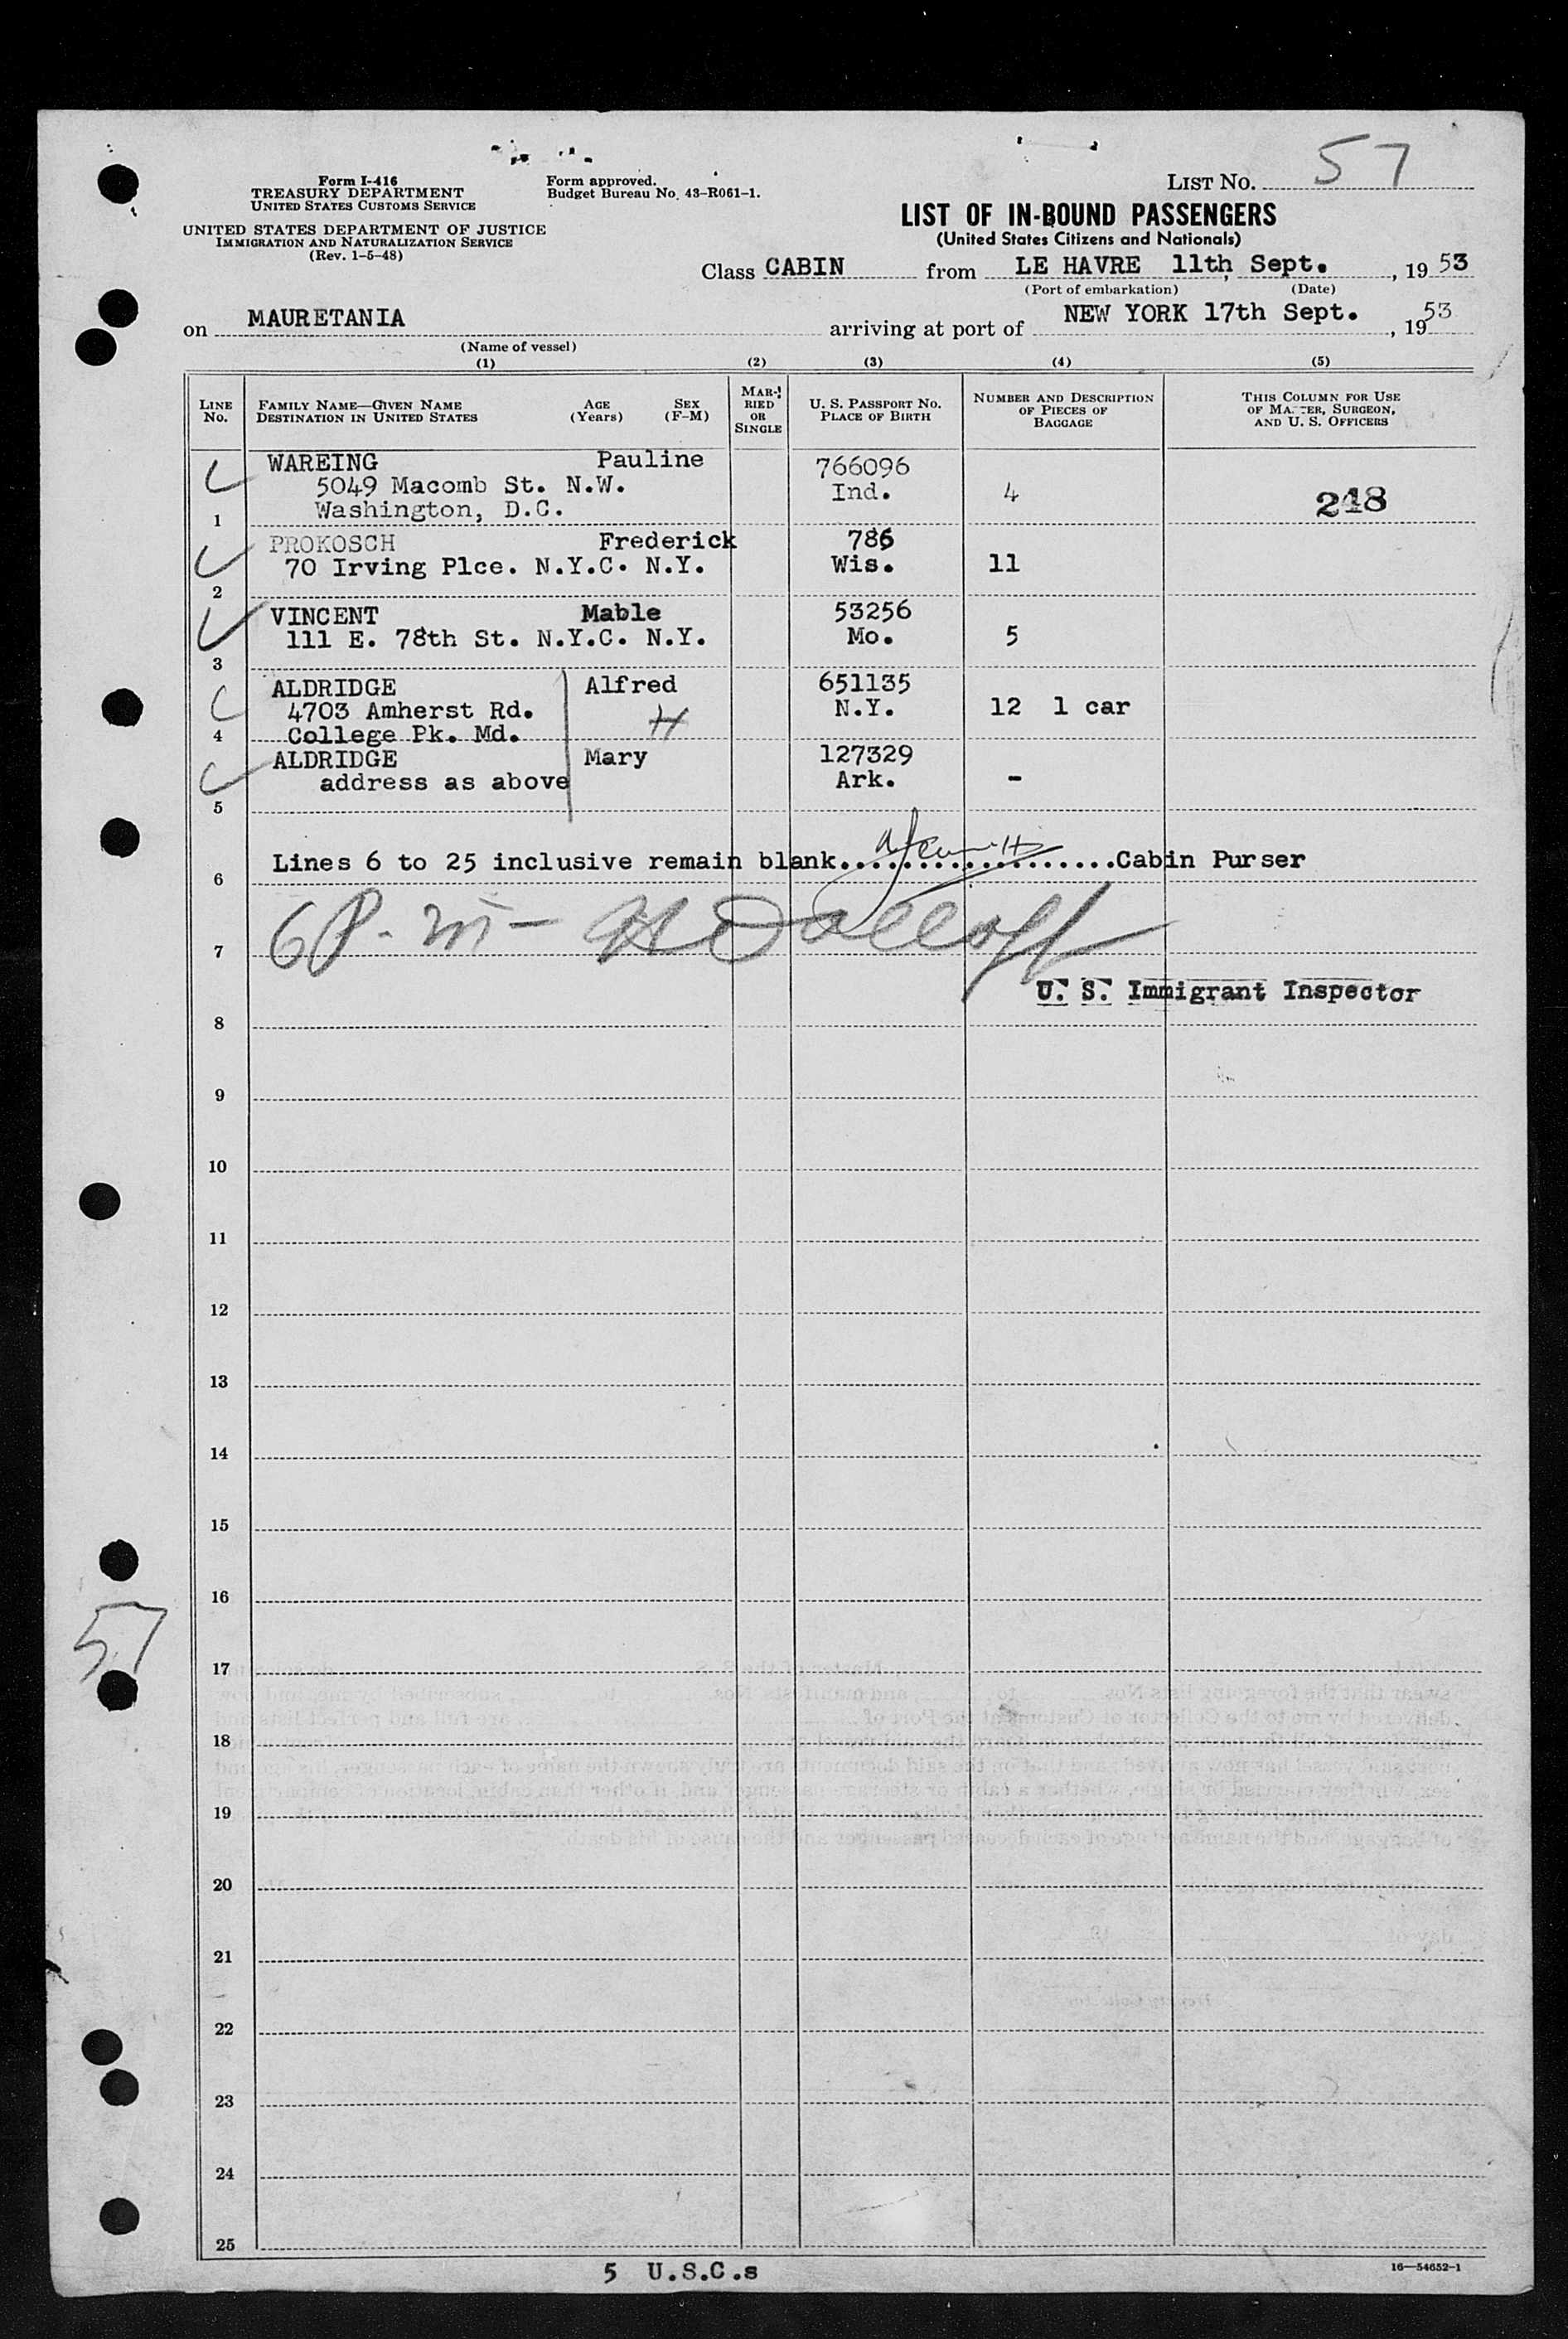 Form I-416
TREASURY DEPARTMENT
UNITED STATES CUSTOMS SERVICE
UNITED STATES DEPARTMENT OF JUSTICE
IMMIGRATION AND NATURALIZATION SERVICE
(Rev. 1-5-48)
Form approved.
Budget Bureau No. 43-R061-1.
LIST NO. 57
LIST OF IN-BOUND PASSENGERS
(United States Citizens and Nationals)
Class CABIN from LE HAVRE 11th, Sept., 1953
(Port of embarkation) (Date)
on MAURETANIA arriving at port of NEW YORK 17th Sept., 1953
(Name of vessel)
(1) (2) (3) (4) (5)
LINE NO.
FAMILY NAME—GIVEN NAME
DESTINATION IN UNITED STATES
AGE (Years)
SEX (F-M)
MARRIED OR SINGLE
U. S. PASSPORT NO.
PLACE OF BIRTH
NUMBER AND DESCRIPTION OF PIECES OF BAGGAGE
THIS COLUMN FOR USE OF MASTER, SURGEON, AND U. S. OFFICERS
WAREING Pauline 766096
5049 Macomb St. N.W. Ind. 4 248
1 Washington, D.C.
PROKOSCH Frederick 786
70 Irving Plce. N.Y.C. N.Y. Wis. 11
2
VINCENT Mable 53256
111 E. 78th St. N.Y.C. N.Y. Mo. 5
3
ALDRIDGE Alfred 651135
4703 Amherst Rd. H N.Y. 12 1 car
4 College Pk. Md.
ALDRIDGE Mary 127329
address as above Ark. -
5
Lines 6 to 25 inclusive remain blank...................Cabin Purser
6
7
U. S. Immigrant Inspector
8
9
10
11
12
13
14
15
16
57
17
18
19
20
21
22
23
24
25
5 U.S.C.s
16—54652-1